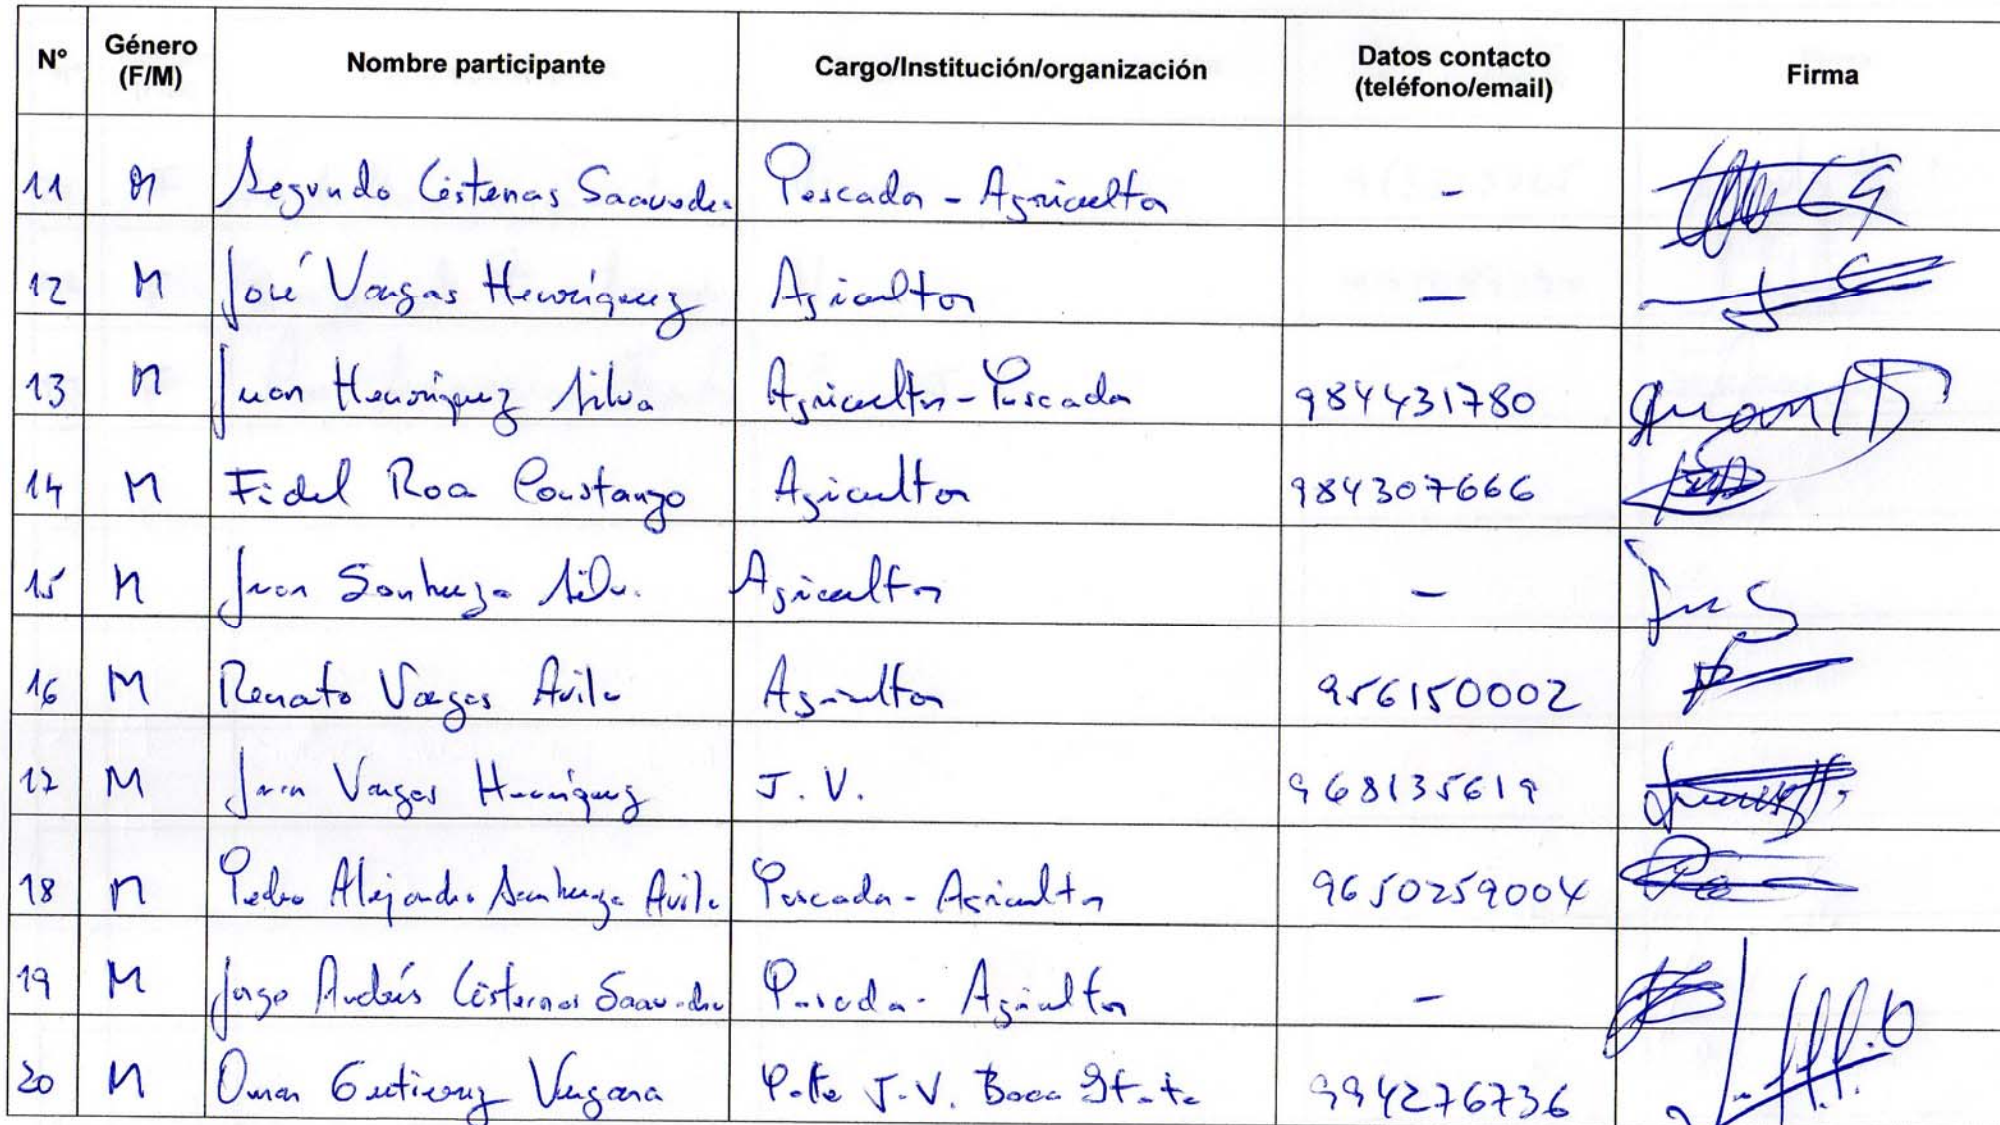 N° Género (F/M) Nombre participante Cargo/Institución/organización Datos contacto (teléfono/email) Firma
11 M Segundo Cisternas Saavedra Pescador - Agricultor -
12 M José Vargas Henríquez Agricultor -
13 M Juan Henríquez Silva Agricultor - Pescador 984431780
14 M Fidel Roa Constanzo Agricultor 984307666
15 M Juan Sanhueza Silva Agricultor -
16 M Renato Vargas Avila Agricultor 956150002
17 M Juan Vargas Henríquez J. V. 968135619
18 M Pedro Alejandro Sanhueza Avila Pescador - Agricultor 9650259004
19 M Jorge Andrés Cisternas Saavedra Pescador - Agricultor -
20 M Omar Gutierrez Vergara J.V. Boca 994276736